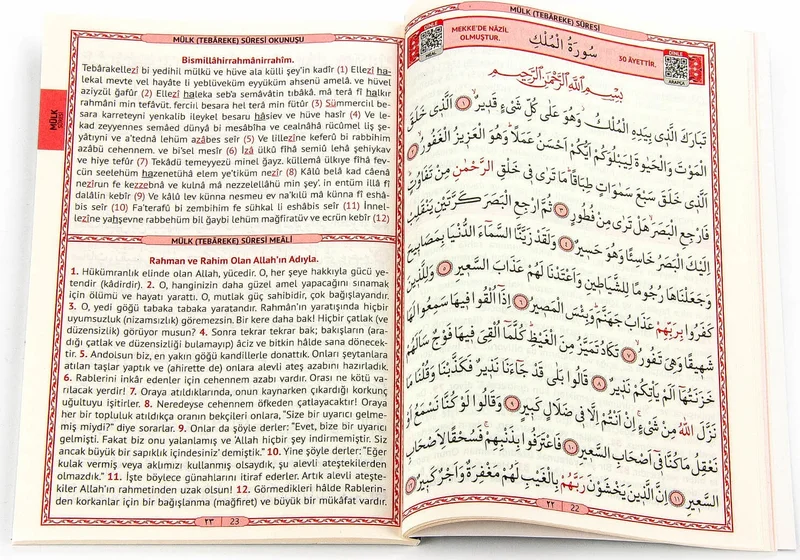 MÜLK (TEBÂREKE) SÛRESİ OKUNUŞU
Bismillâhirrahmânirrahîm.
Tebârakellezî bi yedihil mülkü ve hüve ala külli şey'in kadîr (1) Ellezî ha-
lekal mevte vel hayâte li yeblüveküm eyyüküm ahsenü amelâ. ve hüvel
aziyzül ğafûr (2) Ellezî haleka seb'a semâvâtin tıbâkâ. mâ terâ fî halkır
rahmâni min tefâvüt. ferciıl besara hel terâ min fütûr (3) Sümmerciıl be-
sara karreteyni yenkalib ileykel besaru hâsiev ve hüve hasîr (4) Ve le-
kad zeyyennes semâed dünyâ bi mesâbîha ve cealnâhâ rücûmel liş şe-
yâtıyni ve a'tednâ lehüm azâbes seîr (5) Ve lillezîne keferû bi rabbihim
azâbü cehennem. ve bi'sel mesîr (6) İzâ ülkû fîhâ semiû lehâ şehiykav
ve hiye tefûr (7) Tekâdü temeyyezü minel ğayz. küllemâ ülkıye fîhâ fev-
cün seelehüm hazenetühâ elem ye'tiküm nezîr (8) Kâlû belâ kad câenâ
nezîrun fe kezzebnâ ve kulnâ mâ nezzelellâhü min şey'. in entüm illâ fî
dalâlin kebîr (9) Ve kâlû lev künna nesmeu ev na'kılü mâ künna fî eshâ-
bis seîr (10) Fa'terafû bi zembihim fe sühkal li eshâbis seîr (11) İnnel-
lezîne yahşevne rabbehüm bil ğaybi lehüm mağfiratüv ve ecrün kebîr (12)
MÜLK (TEBÂREKE) SÛRESİ MEÂLİ
Rahman ve Rahim Olan Allah'ın Adıyla.
1. Hükümranlık elinde olan Allah, yücedir. O, her şeye hakkıyla gücü ye-
tendir (kâdirdir). 2. O, hanginizin daha güzel amel yapacağını sınamak
için ölümü ve hayatı yarattı. O, mutlak güç sahibidir, çok bağışlayandır.
3. O, yedi göğü tabaka tabaka yaratandır. Rahmân'ın yaratışında hiçbir
uyumsuzluk (nizamsızlık) göremezsin. Bir kere daha bak! Hiçbir çatlak (ve
düzensizlik) görüyor musun? 4. Sonra tekrar tekrar bak; bakışların (ara-
dığı çatlak ve düzensizliği bulamayıp) âciz ve bitkin hâlde sana dönecek-
tir. 5. Andolsun biz, en yakın göğü kandillerle donattık. Onları şeytanlara
atılan taşlar yaptık ve (ahirette de) onlara alevli ateş azabını hazırladık.
6. Rablerini inkâr edenler için cehennem azabı vardır. Orası ne kötü va-
rılacak yerdir! 7. Oraya atıldıklarında, onun kaynarken çıkardığı korkunç
uğultuyu işitirler. 8. Neredeyse cehennem öfkeden çatlayacaktır! Oraya
her bir topluluk atıldıkça oranın bekçileri onlara, "Size bir uyarıcı gelme-
miş miydi?" diye sorarlar. 9. Onlar da şöyle derler: "Evet, bize bir uyarıcı
gelmişti. Fakat biz onu yalanlamış ve 'Allah hiçbir şey indirmemiştir. Siz
ancak büyük bir sapıklık içindesiniz' demiştik." 10. Yine şöyle derler: "Eğer
kulak vermiş veya aklımızı kullanmış olsaydık, şu alevli ateştekilerden
olmazdık." 11. İşte böylece günahlarını itiraf ederler. Artık alevli ateşte-
kiler Allah'ın rahmetinden uzak olsun! 12. Görmedikleri hâlde Rablerin-
den korkanlar için bir bağışlanma (mağfiret) ve büyük bir mükâfat vardır.
٢٣ 23
MÜLK
SÛRESİ
MÜLK (TEBÂREKE) SÛRESİ
DİNLE
MEKKE'DE NÂZİL
OLMUŞTUR.
سُورَةُ الْمُلْكِ
30 ÂYETTİR.
DİNLE
ARAPÇA
بِسْمِ اللّٰهِ الرَّحْمٰنِ الرَّحِيمِ
تَبَارَكَ الَّذٖى بِيَدِهِ الْمُلْكُ وَهُوَ عَلٰى كُلِّ شَىْءٍ قَدٖيرٌ ١ اَلَّذٖى خَلَقَ
الْمَوْتَ وَالْحَيٰوةَ لِيَبْلُوَكُمْ اَيُّكُمْ اَحْسَنُ عَمَلًا وَهُوَ الْعَزٖيزُ الْغَفُورُ ٢
اَلَّذٖى خَلَقَ سَبْعَ سَمٰوَاتٍ طِبَاقًا مَا تَرٰى فٖى خَلْقِ الرَّحْمٰنِ مِنْ تَفَاوُتٍ
فَارْجِعِ الْبَصَرَ هَلْ تَرٰى مِنْ فُطُورٍ ٣ ثُمَّ ارْجِعِ الْبَصَرَ كَرَّتَيْنِ يَنْقَلِبْ
اِلَيْكَ الْبَصَرُ خَاسِئًا وَهُوَ حَسٖيرٌ ٤ وَلَقَدْ زَيَّنَّا السَّمَاءَ الدُّنْيَا بِمَصَابٖيحَ
وَجَعَلْنَاهَا رُجُومًا لِلشَّيَاطٖينِ وَاَعْتَدْنَا لَهُمْ عَذَابَ السَّعٖيرِ ٥ وَلِلَّذٖينَ
كَفَرُوا بِرَبِّهِمْ عَذَابُ جَهَنَّمَ وَبِئْسَ الْمَصٖيرُ ٦ اِذَا اُلْقُوا فٖيهَا سَمِعُوا لَهَا
شَهٖيقًا وَهِىَ تَفُورُ ٧ تَكَادُ تَمَيَّزُ مِنَ الْغَيْظِ كُلَّمَا اُلْقِىَ فٖيهَا فَوْجٌ سَاَلَهُمْ
خَزَنَتُهَا اَلَمْ يَاْتِكُمْ نَذٖيرٌ ٨ قَالُوا بَلٰى قَدْ جَاءَنَا نَذٖيرٌ فَكَذَّبْنَا وَقُلْنَا مَا
نَزَّلَ اللّٰهُ مِنْ شَىْءٍ اِنْ اَنْتُمْ اِلَّا فٖى ضَلَالٍ كَبٖيرٍ ٩ وَقَالُوا لَوْ كُنَّا نَسْمَعُ اَوْ
نَعْقِلُ مَا كُنَّا فٖى اَصْحَابِ السَّعٖيرِ ١٠ فَاعْتَرَفُوا بِذَنْبِهِمْ فَسُحْقًا لِاَصْحَابِ
السَّعٖيرِ ١١ اِنَّ الَّذٖينَ يَخْشَوْنَ رَبَّهُمْ بِالْغَيْبِ لَهُمْ مَغْفِرَةٌ وَاَجْرٌ كَبٖيرٌ
٢٢ 22